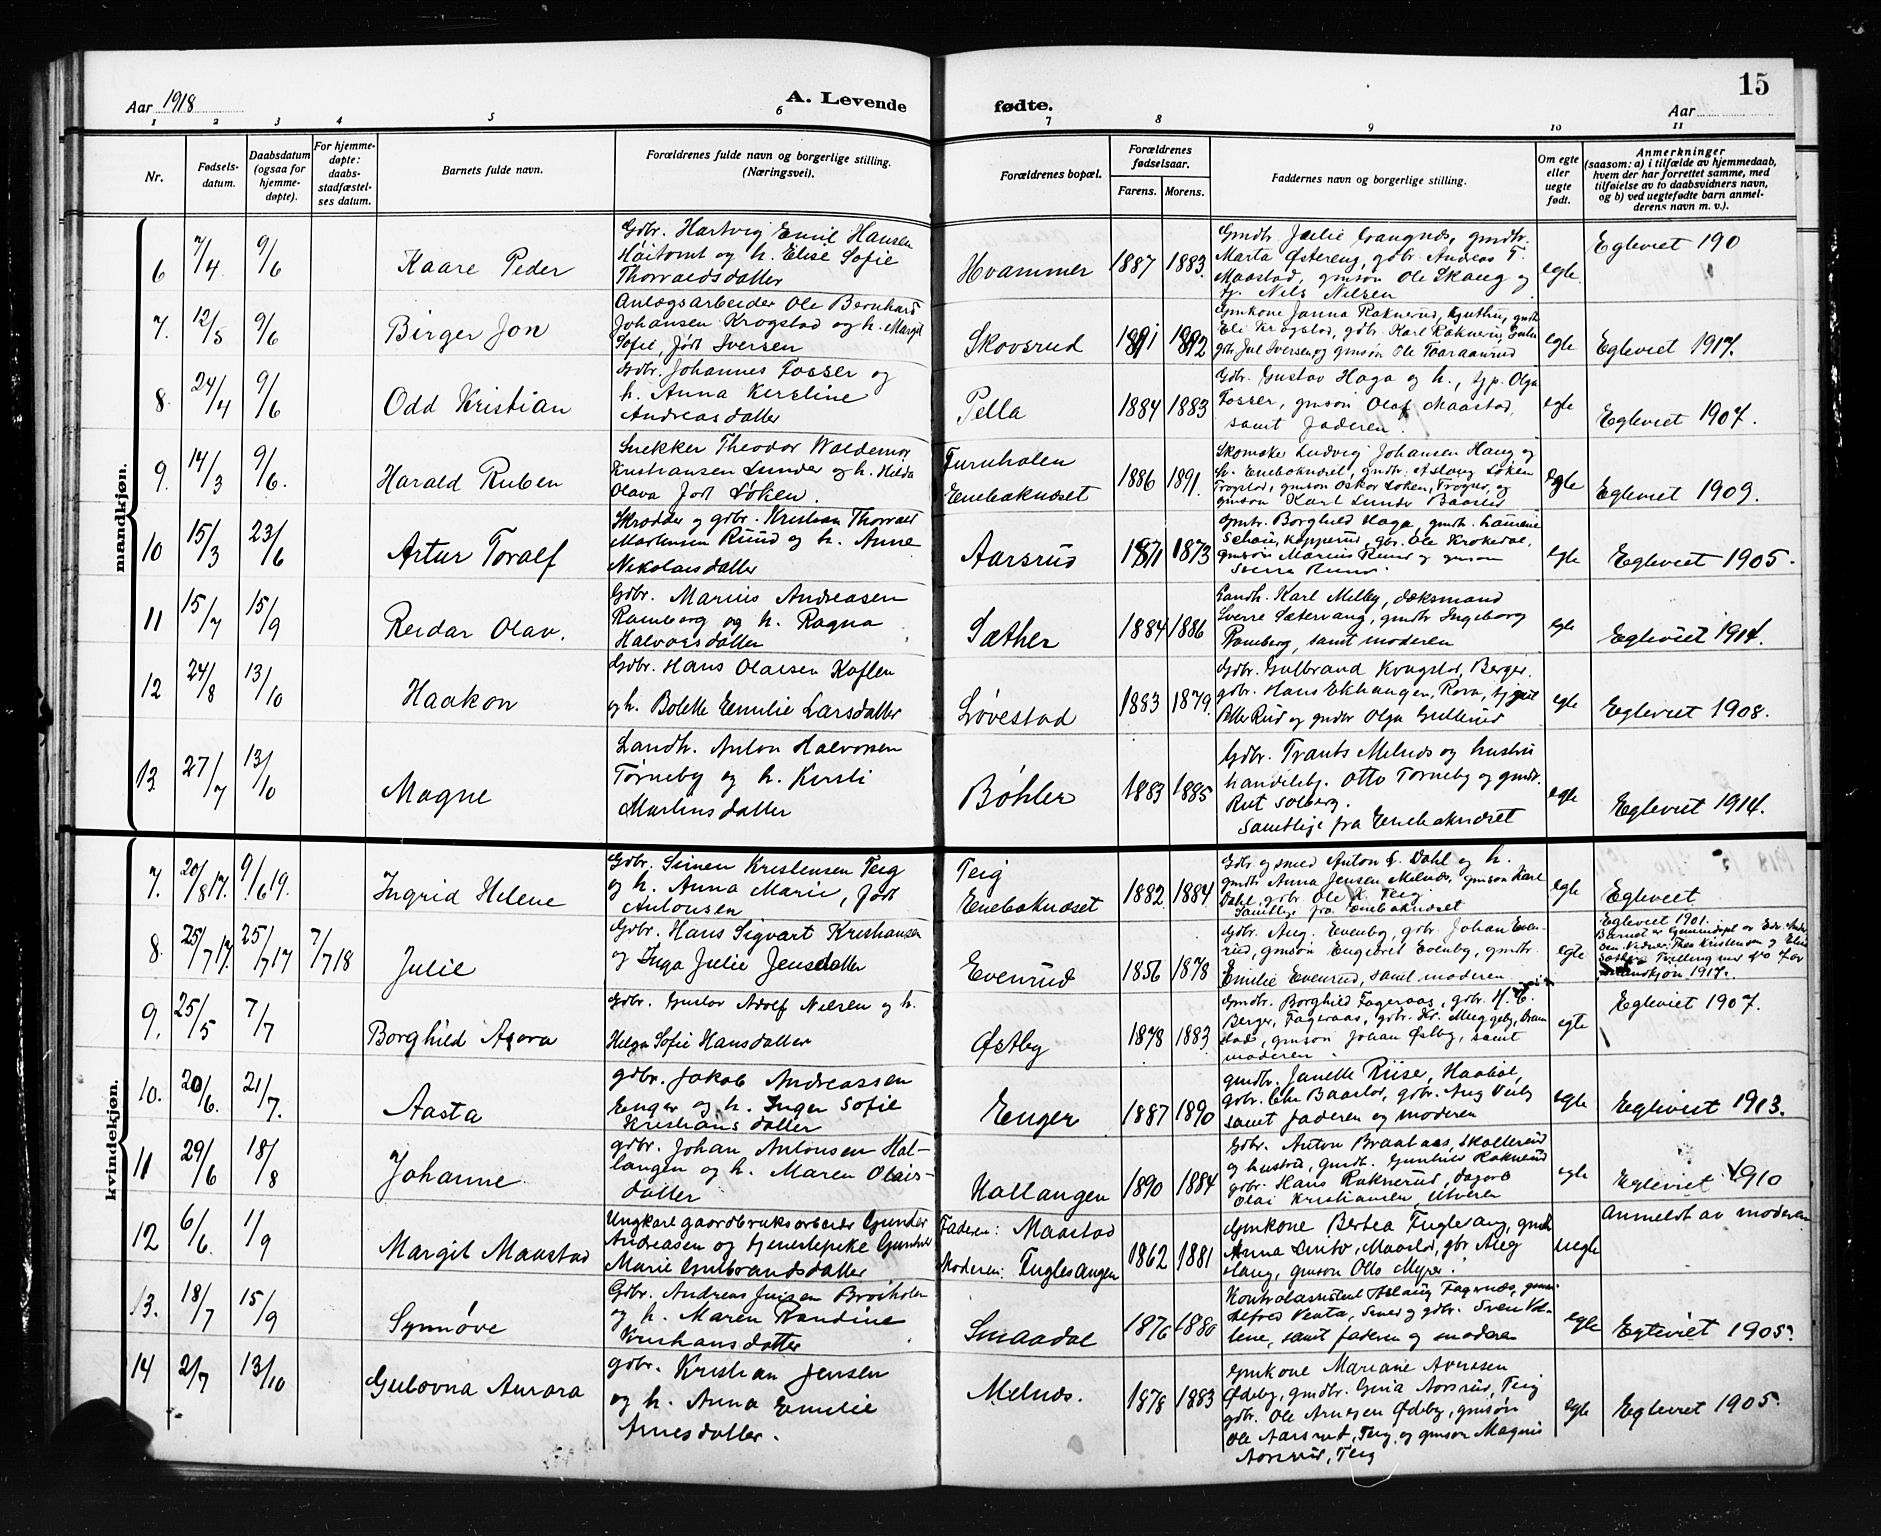 Aar 1918
A. Levende
fødte.
15
Aar
1 2 3 4 5 6 7 8 9 10 11
Nr.
Fødsels-
datum.
Daabsdatum
(ogsaa for
hjemme-
døpte).
For hjemme-
døpte:
daabs-
stadfæstel-
ses datum.
Barnets fulde navn.
Forældrenes fulde navn og borgerlige stilling.
(Næringsvei).
Forældrenes bopæl.
Forældrenes
fødselsaar.
Farens. Morens.
Faddernes navn og borgerlige stilling.
Om egte
eller
uegte
født.
Anmerkninger
(saasom: a) i tilfælde av hjemmedaab,
hvem der har forrettet samme, med
tilføielse av to daabsvidners navn,
og b) ved uegtefødte barn anmel-
derens navn m. v.).
mandkjøn.
6 7/4 9/6 Kaare Peder
Gdbr. Hartvig Emil Hansen
Høitomt og h. Elise Sofie
Thorvaldsdatter
Hvammer 1887 1883
Marta Østereng, gdbr. Andreas T.
Maastad, gmsøn Ole Skaug og
tj. Nils Nilsen
egte Egteviet 190
7. 12/5 9/6 Birger Jon
Anlægsarbeider Ole Bernhard
Johansen Krogstad og h. Margit
Sofie, født Iversen
Skovsrud 1891 1892
Eli Krogstad, gdbr. Karl Raknerud,
gbr. Jul Iversen og gmsøn Ole Taaraanrud
egte Egteviet 1917.
8. 24/4 9/6 Odd Kristian
Gdbr. Johannes Fosser og
h. Anna Kirstine
Andreasdatter
Pella 1884 1883
Gdbr. Gustav Haga og h., tjp. Olga
Fosser, gmsøn Olaf Maastad,
samt faderen.
egte Egteviet 1907.
9. 14/3 9/6. Harald Ruben
Snekker Theodor Waldemar
Kristiansen Lunder og h. Hilda
Olava født Løken.
Furuholen
Enebaknæset 1886 1891.
Skomaker Ludvig Johansen Haug og
h. Enebaknæset, gmdtr. Aslaug Løken
Trøgstad, gmsøn Oskar Løken, Trøgst, og
gmsøn Karl Lunde Baastad
egte Egteviet 1909.
10 15/3 23/6 Artur Toralf
Skrædder og gdbr. Kristian Thorvald
Martinsen Ruud og h. Anne
Nikolaisdatter
Aarsrud 1871 1873
gmdtr. Borghild Haga, gmdtr. Laurine
gbr. Ole Krokedal,
gmsøn Marius Ruud og gmsøn
Sverre Ruud.
egte Egteviet 1905.
11 15/7 15/9 Reidar Olav.
Gdbr. Marius Andreasen
Ramberg og h. Ragna
Halvorsdatter
Sæther 1884 1886
Landh. Karl Melby, dæksmand
Sverre Sætervang, gmdtr Ingeborg
Ramberg, samt moderen
egte Egteviet 1914.
12 24/8 13/10 Haakon
Gdbr. Hans Olaisen Koflen
og h. Bolette Emilie Larsdatter
Løvestad 1883 1879.
Gdbr. Gulbrand Krogstad, Berger,
gdbr. Hans Ekhaugen, Rova,
og gmdtr Olga Gullerud
egte Egteviet 1908.
13. 27/7 13/10 Magne
Landh. Anton Halvorsen
Tørneby og h. Kirsti
Martinsdatter
Bøhler 1883 1885
Gdbr. Trants Melnæs og hustru
handelsbj. Otto Tørneby og gmdtr.
Rut Solberg.
Samtlige fra Enebaknæset
egte Egteviet 1914.
kvindekjøn.
7. 20/8 17. 9/6 19. Ingrid Helene
Gdbr. Simen Kristensen Teig
og h. Anna Marie, født
Antonsen
Teig
Enebaknæset 1882 1884
Gdbr. og smed Anton E. Dahl og h.
gmdtr Anna Jensen Melnæs, gmsøn Karl
Dahl, gdbr. Ole K. Teig
Samtlige fra Enebaknæset
egte Egteviet
8. 25/7 17. 25/7 17 7/7 18 Julie
Gdbr. Hans Sigvart Kristiansen
og Inga Julie Jensdatter
Evenrud 1856 1878
Gdbr. Aug. Evenby, gdbr. Johan Even-
rud, gmsøn Engebret Evenby, gmdtr.
Emilie Evenrud, samt moderen
egte Egteviet 1901.
Barnet er hjemmedøpt av
Tvilling med No 7 av
mandkjøn 1917.
9. 25/5 7/7 Borghild Agora
Gdbr. Gustav Adolf Nilsen og h.
Helga Sofie Hansdatter
Østby 1878 1883
Gmdtr. Borghild Fageraas, gdbr. H. C.
Berger, Fageraas, gdbr. Kr. Muggeby, Dram
stad, gmsøn Johan Østby, samt
moderen
egte Egteviet 1907.
10. 20/6. 21/7. Aasta
gdbr. Jakob Andreassen
Enger og h. Inger Sofie
Kristiansdatter
Enger 1887 1890
gmdtr. Janette Riise, Haabøl,
gdbr. Chr Baastad, gdbr. Aug Veiby
samt faderen og moderen
egte Egteviet 1913.
11 29/6 18/8 Johanne
gdbr. Johan Antonsen Hal-
langen og h. Maren Olais-
datter
Hallangen 1890 1884
Gdbr. Anton Braataas, Skallerud
og hustru, gmdt. Gunhild Raknerud
gdbr. Hans Raknerud,
Olai Kristiansen,
egte Egteviet 1910
12 6/6. 1/9 Margit Maastad
Ungkarl gaardbruksarbeider Gunder
Andreasen og tjenestepike Gunhild
Marie Gulbrandsdatter
Faderen: Maastad
Moderen: Fuglesangen 1862 1881
Gmkone Bertea Fuglesang, gmdtr
Anna Maastad, gbr Aug
Haug, gmsøn Otto Myrer.
uegte Anmeldt av moderen
13. 18/7 15/9 Synnøve
Gdbr. Andreas Jensen Braaholen
og h. Maren Randine
Kristiansdatter
Smaadal 1876 1880
Kontrolassistent Aslaug Fagernæs,
Alfred Venta, Smed og gdbr. Sven
samt faderen og moderen
egte Egteviet 1905
14 2/7 13/10 Gulovna Aurora
gdbr. Kristian Jensen
og h. Anna Emilie
Arnesdatter.
Melnæs. 1878 1883
Gmkone Mariane Arnesen
Ødeby, gmdtr. Gina Aarsrud, Teig
gdbr. Ole Arnesen Ødeby, gmsøn
Ole Aarsrud, Teig, og gmsøn Magnus
Aarsrud, Teig
egte Egteviet 1905.